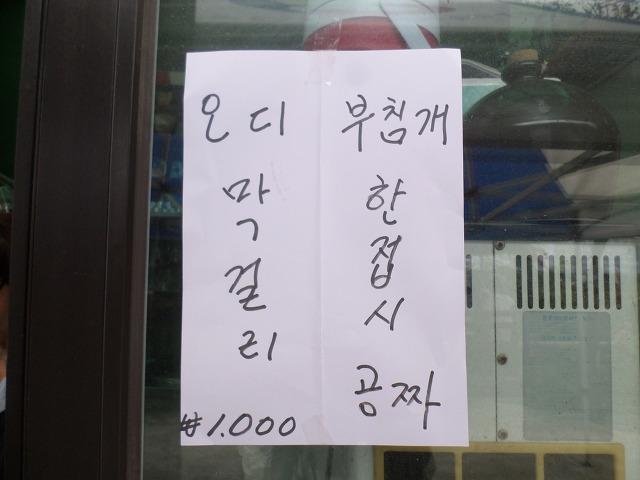 오디
막걸리
₩1.000
부침개
한접시
공짜